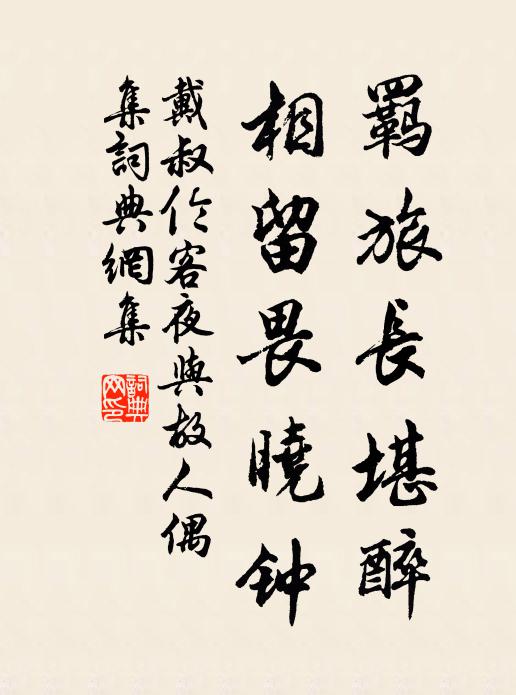 羈旅長堪醉
相留畏曉钟
戴叔伦客夜與故人偶
集詞典網集
詞典
网印